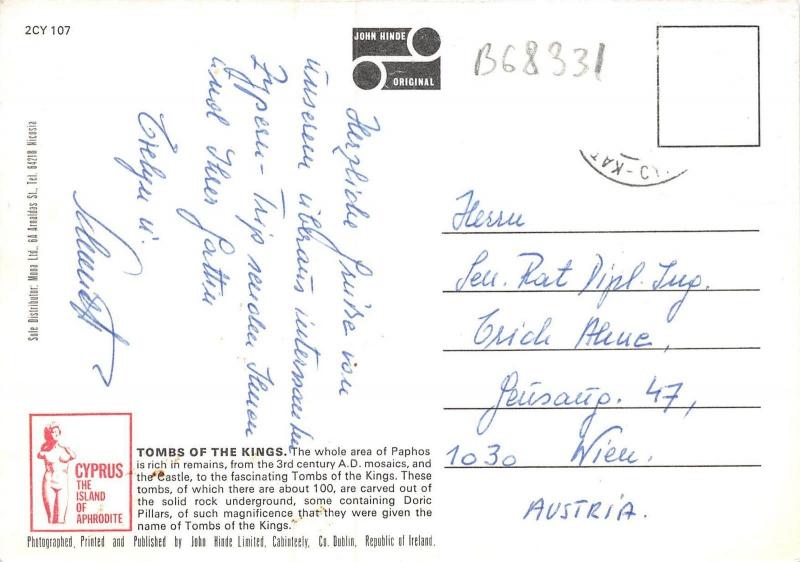 2CY 107
JOHN HINDE
ORIGINAL
B68331
Herzliche Grüße von
unserem überaus interessanten
Zypern-Trip senden Ihnen
und Ihrer Gattin
Evelyn u.
Herrn
Sen. Rat Dipl. Ing.
Erich
47,
1030 Wien.
AUSTRIA.
Sole Distributor: Mono Ltd., 6A Arnaldas St., Tel. 64218 Nicosia
CYPRUS
THE
ISLAND
OF
APHRODITE
TOMBS OF THE KINGS. The whole area of Paphos
is rich in remains, from the 3rd century A.D. mosaics, and
the castle, to the fascinating Tombs of the Kings. These
tombs, of which there are about 100, are carved out of
the solid rock underground, some containing Doric
Pillars, of such magnificence that they were given the
name of Tombs of the Kings.
Photographed, Printed and Published by John Hinde Limited, Cabinteely, Co. Dublin, Republic of Ireland.